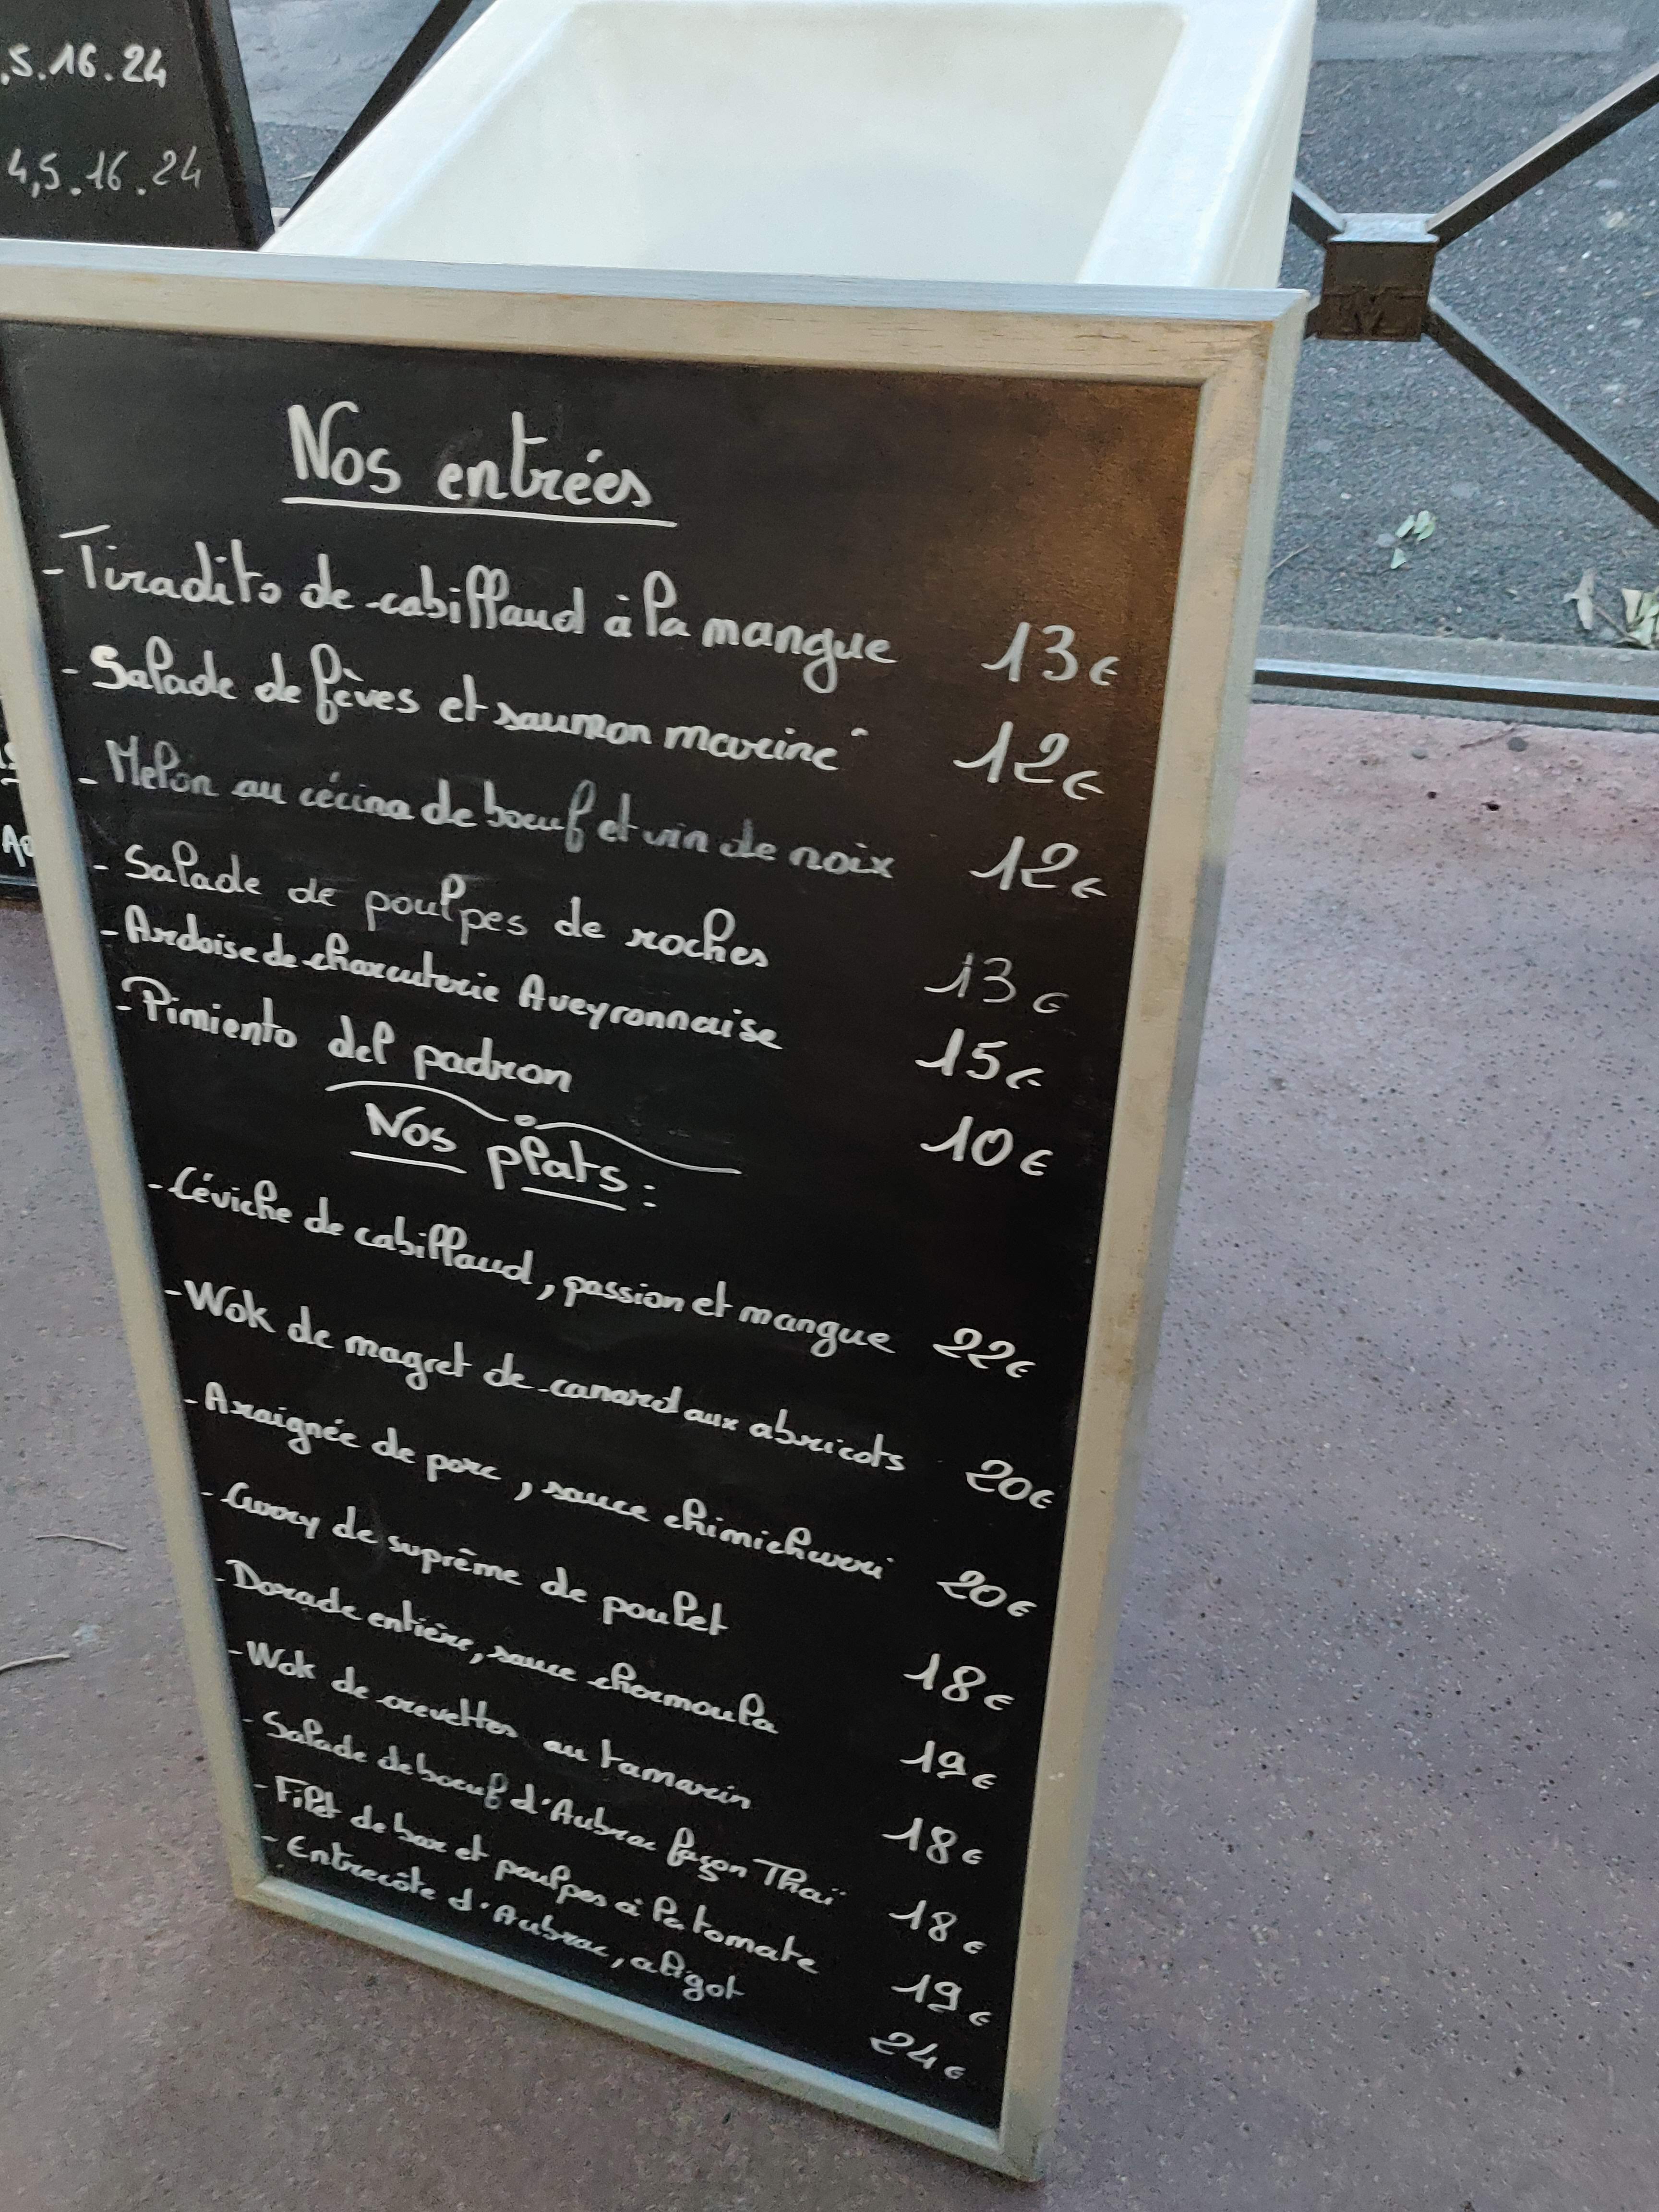 ,5.16.24
4,5.16.24
Nos entrées
- Tiradito de cabillaud à la mangue 13€
- Salade de fèves et saumon mariné 12€
- Melon au cécina de boeuf et vin de noix 12€
- Salade de poulpes de roches 13€
- Ardoise de charcuterie Aveyronnaise 15€
- Pimiento del padron 10€
Nos plats :
- Céviche de cabillaud, passion et mangue 22€
- Wok de magret de canard aux abricots 20€
- Araignée de porc, sauce chimichurri 20€
- Curry de suprême de poulet 18€
- Dorade entière, sauce charmoula 19€
- Wok de crevettes au tamarin 18€
- Salade de boeuf d'Aubrac façon Thaï 18€
- Filet de bar et poulpes à la tomate 19€
- Entrecôte d'Aubrac, aligot 24€